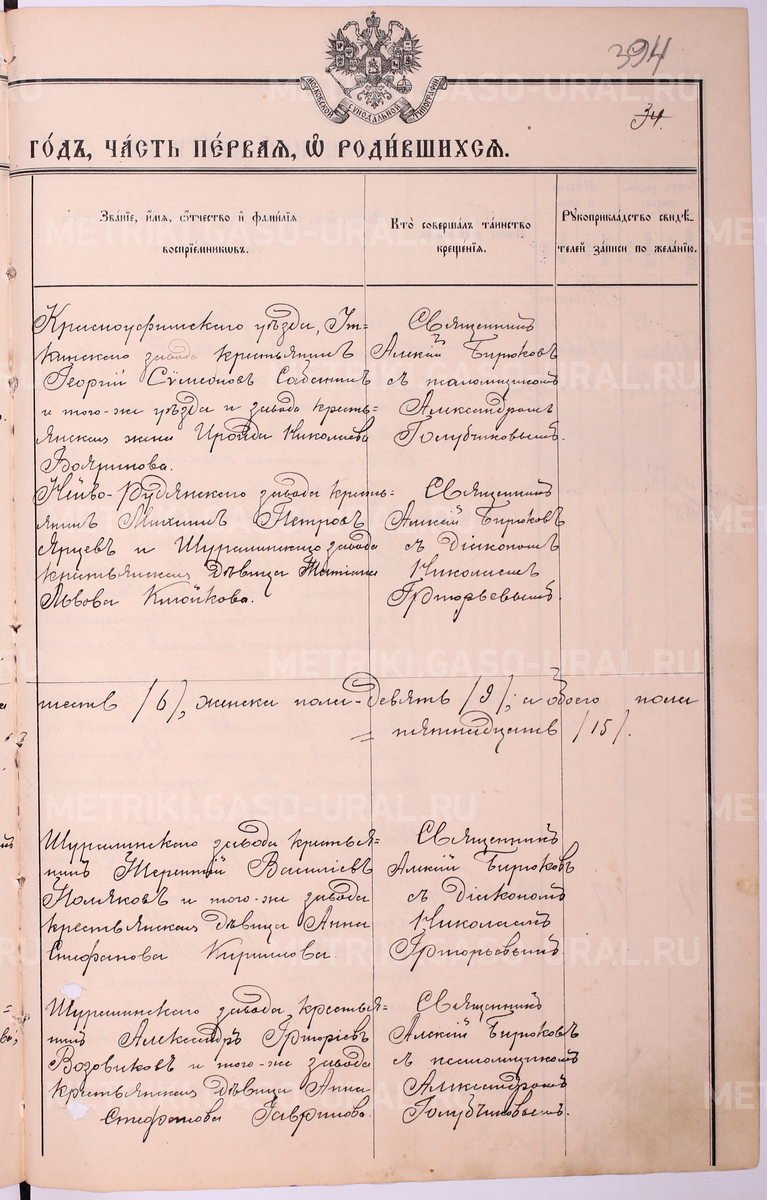 394
34.
МОСКОВСКОЙ СѴНОДАЛЬНОЙ ТИПОГРАФІИ
ГО́ДЪ, ЧА́СТЬ ПЕ́РВАѦ, Ѡ РОДИ́ВШИХСѦ.
Зва́нїе, и́мѧ, ѻ҆́тчество и҆ фами́лїѧ
воспрїе́мникѡвъ.
Кто̀ соверша́лъ та́инство
креще́нїѧ.
Рꙋкоприкла́дство свидѣ́-
телей за́писи по жела́нїю.
Красноуфимскаго уѣзда, Ут-
кинскаго завода крестьянинъ
Георгій Сѵмеоновъ Сабанинъ
и того-же уѣзда и завода кресть=
янская жена Ироида Николаева
Бояринова.
Священникъ
Алексій Бирюковъ
съ псаломщикомъ
Александромъ
Голубчиковымъ.
Нейво-Рудянскаго завода кресть=
янинъ Михаилъ Петровъ
Ярцевъ и Шуралинскаго завода
крестьянская дѣвица Татіана
Львова Клюйкова.
Священникъ
Алексій Бирюковъ
съ Діакономъ
Николаемъ
Григорьевымъ.
шесть /6/, женска пола-девять /9/; а обоего пола
= пятнадцать /15/.
Шуралинскаго завода крестья-
нинъ Терентій Василіевъ
Поляковъ и того-же завода
крестьянская дѣвица Анна
Стефанова Кириллова.
Священникъ
Алексій Бирюковъ
съ Діакономъ
Николаемъ
Григорьевымъ.
Шуралинскаго завода крестья=
нинъ Александръ Григоріевъ
Возовиковъ и того-же завода
крестьянская дѣвица Анна
Стефанова Гаврилова.
Священникъ
Алексій Бирюковъ
съ псаломщикомъ
Александромъ
Голубчиковымъ.
METRIKI.GASO-URAL.RU